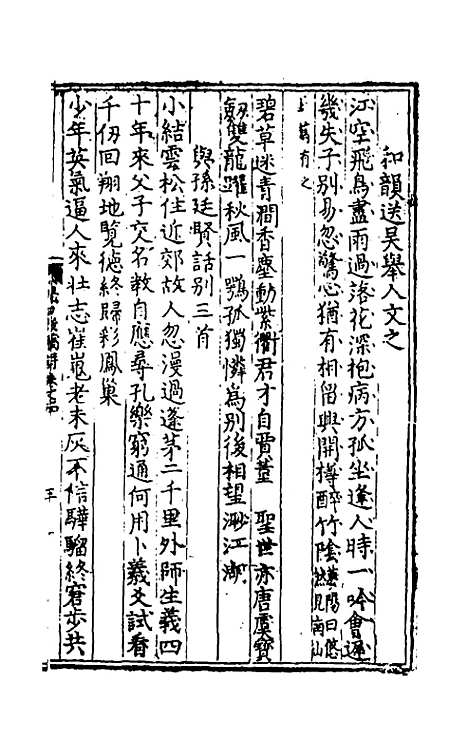 和韻送吴舉人文之
江空飛鳥盡雨過落花深抱病方孤坐逢人時一吟會遲
幾失子別易忽驚心猶有相留興開樽醉竹陰 襄陽曰悠然見南山
上篇有之
碧草迷青澗香塵動紫衢君才自賈董 聖世亦唐虞寶
劔雙龍躍秋風一鶚孤獨憐為別後相望渺江湖
與孫廷賢話別三首
小結雲松住近郊故人忽漫過蓬茅二千里外師生義四
十年來父子交名教自應尋孔樂窮通何用卜羲爻試看
千仞回翔地覽德終歸彩鳳巢
少年英氣逼人來壯志崔嵬老未灰不信驊騮終窘步共